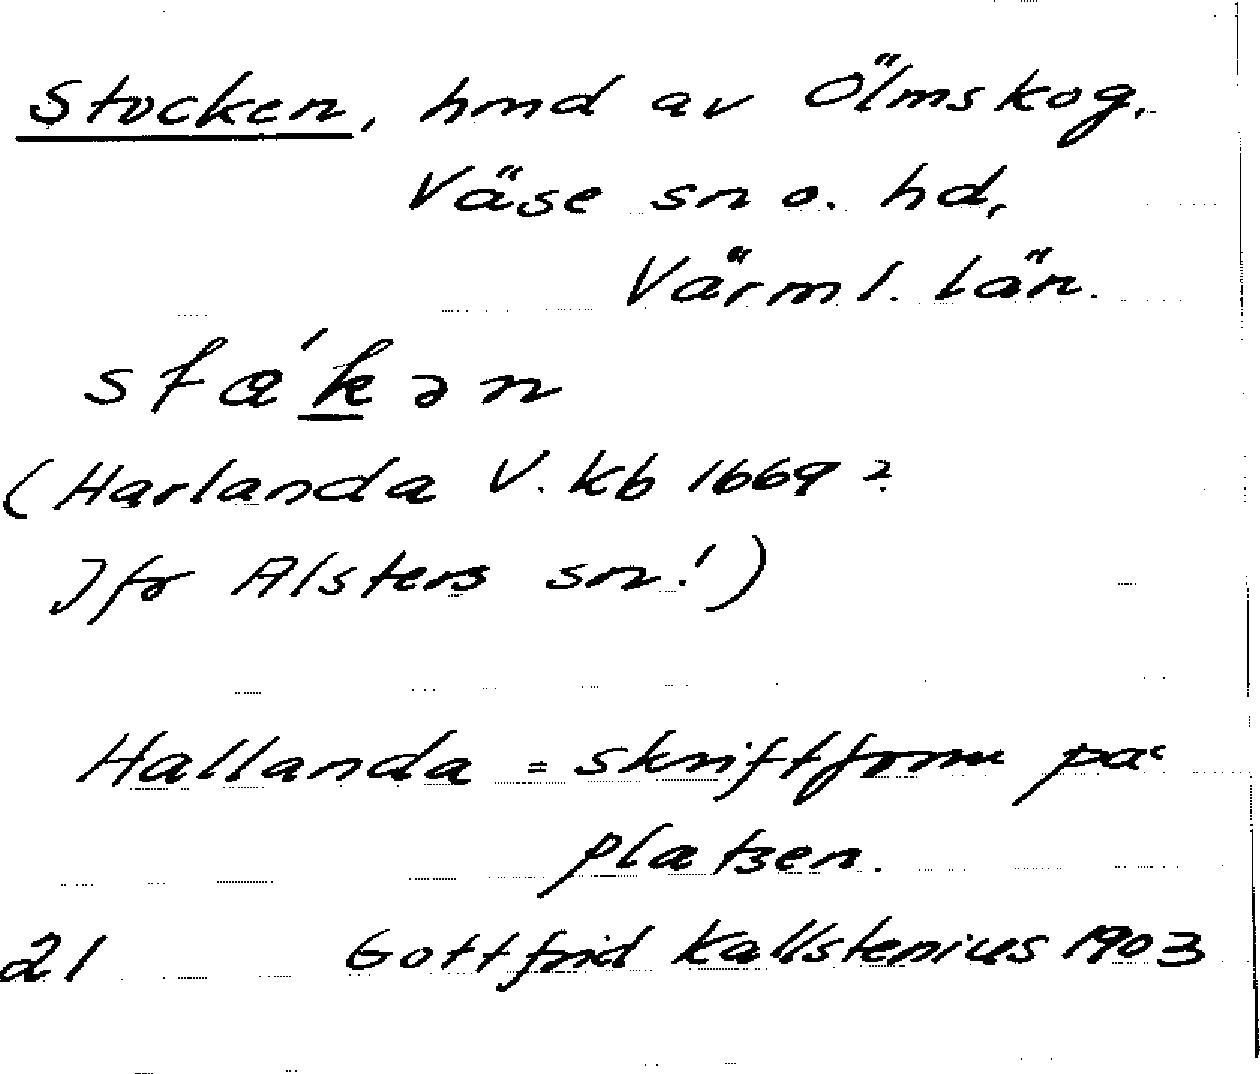 Stocken, hmd av Ölmskog.
Väse sn o. hd,
Värml. län.
stá̊kən
(Harlanda V. Kb 1669?
Jfr Alsters sn.!)
Hallanda = skriftform på
platsen.
21 Gottfrid Kallstenius 1903